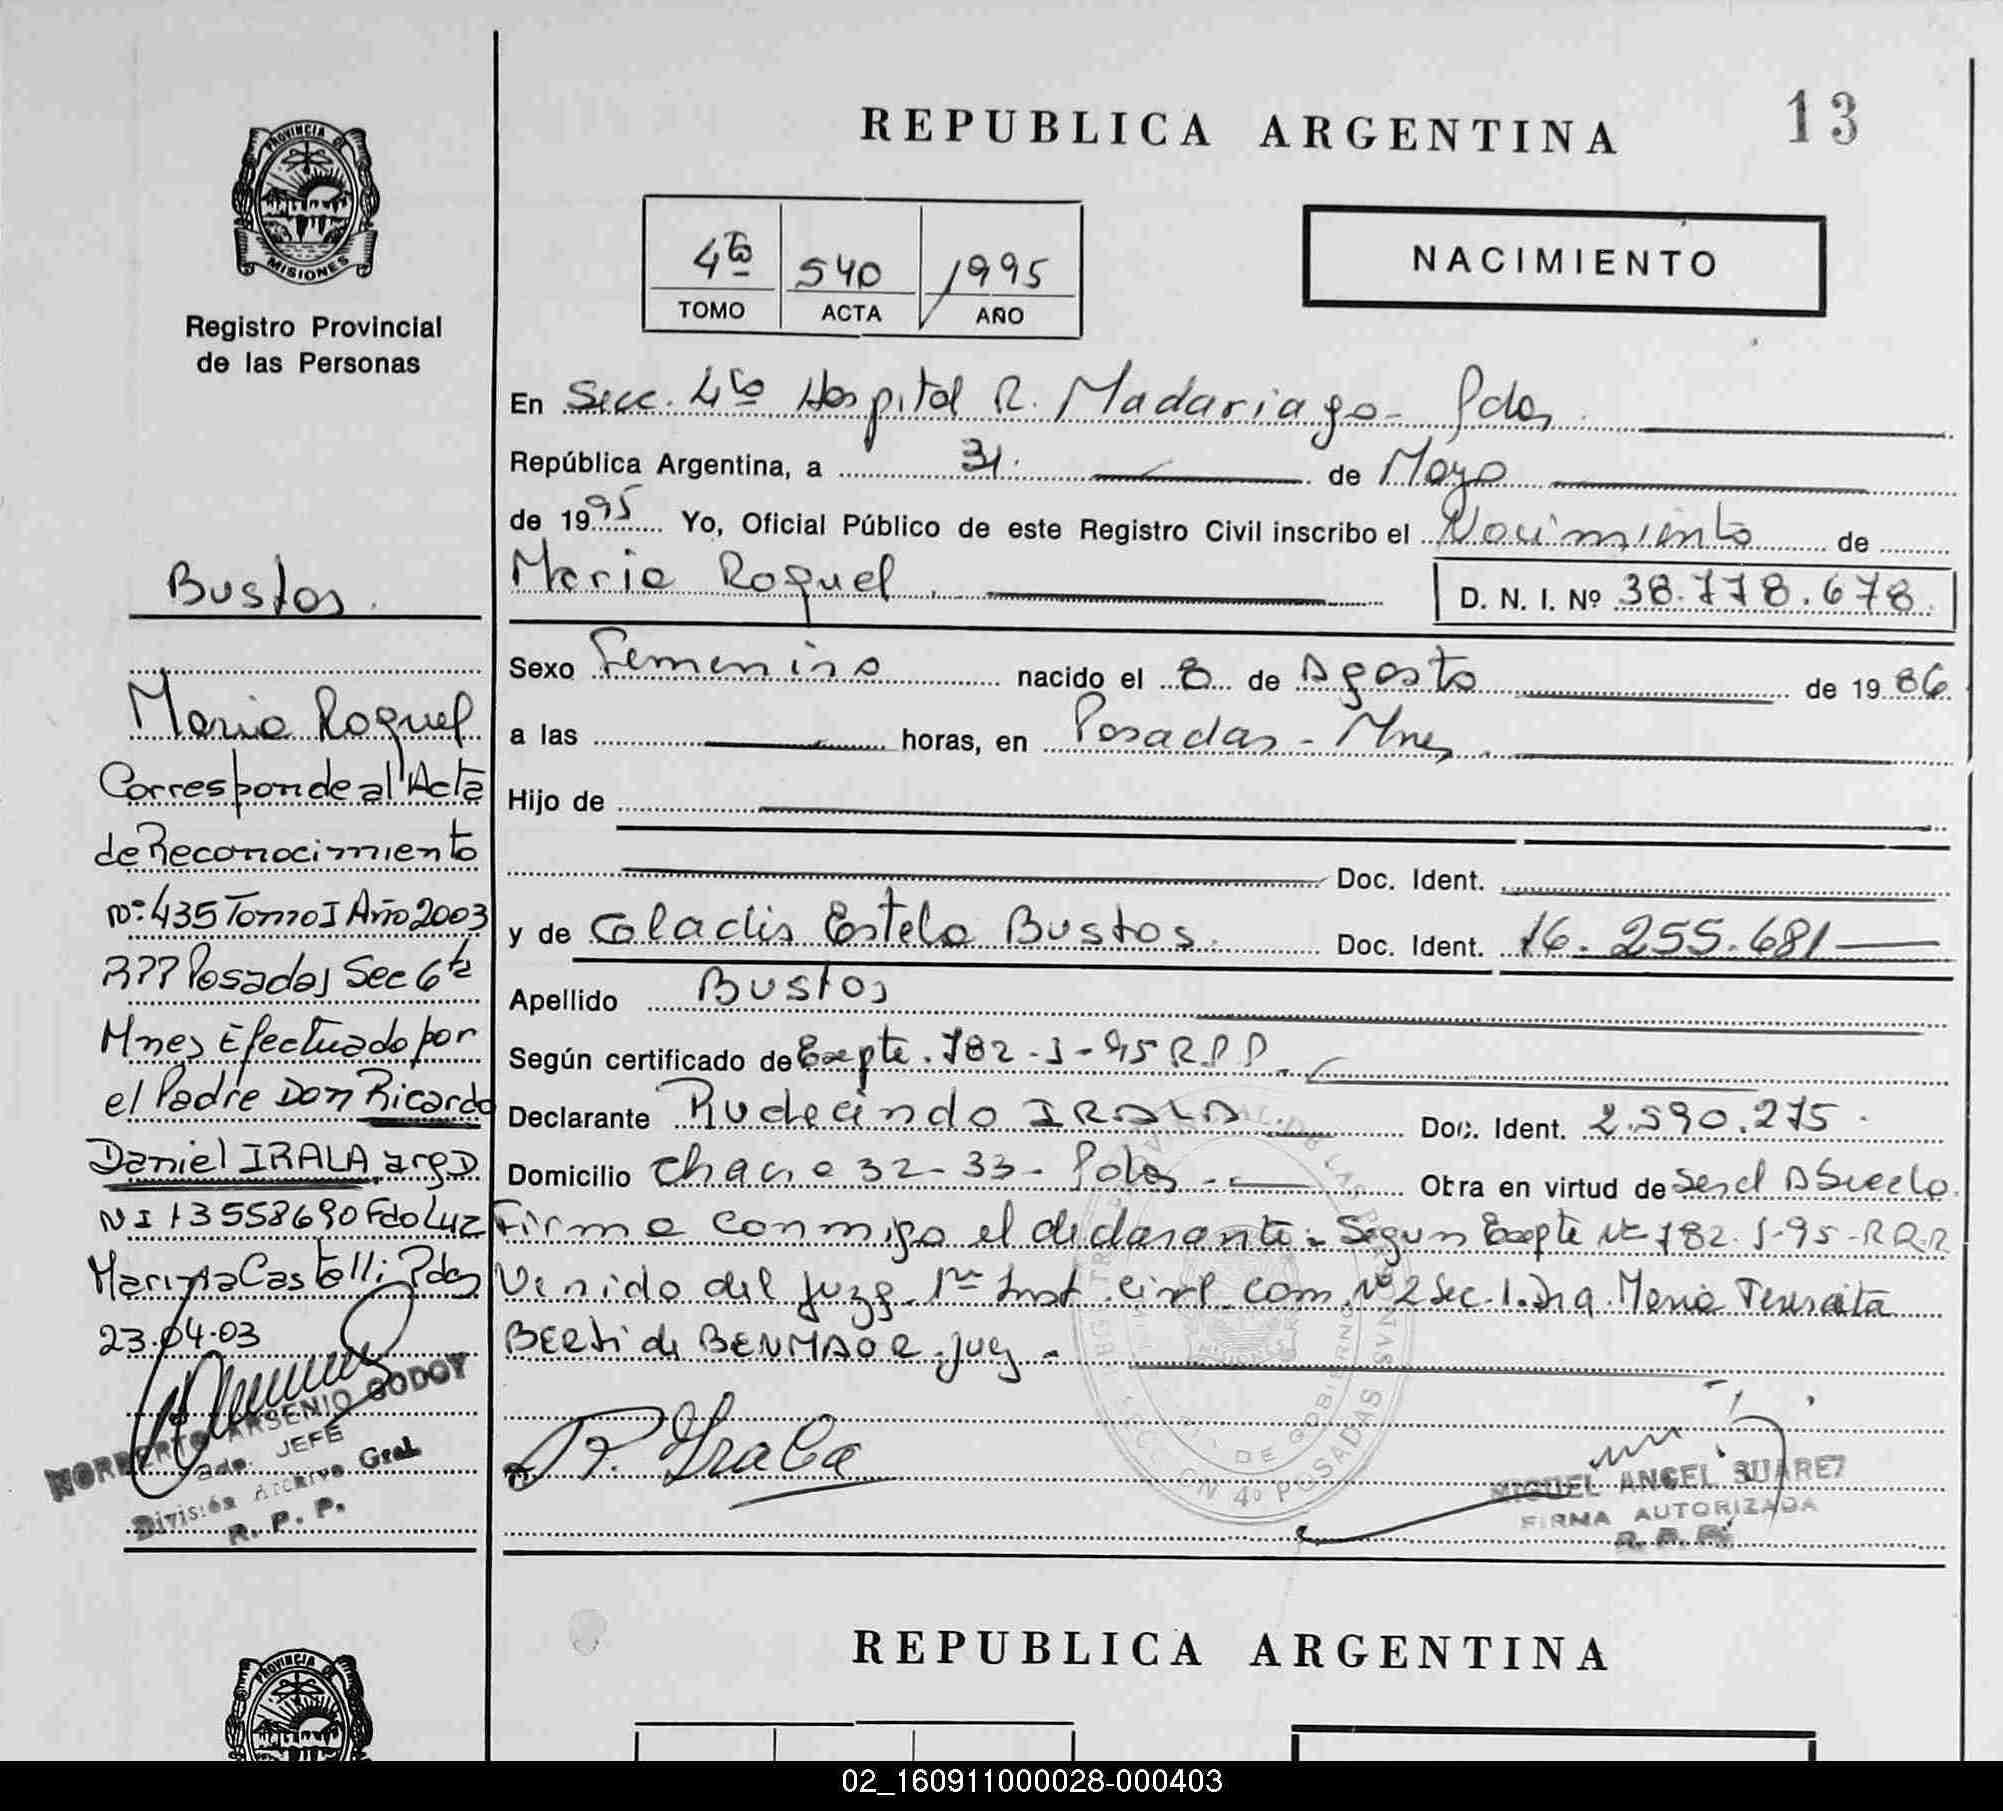 REPUBLICA ARGENTINA
13
PROVINCIA DE
MISIONES
Registro Provincial
de las Personas
4to 540 1995
TOMO ACTA AÑO
NACIMIENTO
En Secc. 4ta Hospital R. Madariaga - Pdas.
República Argentina, a 31. de Mayo
de 1995 Yo, Oficial Público de este Registro Civil inscribo el Nacimiento de
Maria Raquel. D. N. I. Nº 38.778.678.
Sexo Femenino nacido el 8 de Agosto de 1986.
a las horas, en Posadas - Mnes.
Hijo de
Doc. Ident.
y de Gladis Estela Bustos. Doc. Ident. 16.255.681
Apellido Bustos
Según certificado de Expte. 782-J-95 R.P.P.
Declarante Rudecindo IRALA. Doc. Ident. 2.590.275.
Domicilio Chacra 32-33- Pdas. Obra en virtud de Ser el Abuelo.
Firma conmigo el declarante: Segun Expte Nº 782-J-95-R.P.P
Venido del Juzg. 1ra Inst. Civil. Com. Nº 2 Sec. 1. Dra. Maria Teresita
BERTI de BENMAOR. Juez.
R. Irala
MIGUEL ANGEL SUAREZ
FIRMA AUTORIZADA
R. P. P.
Bustos.
Maria Raquel
Corresponde al Acta
de Reconocimiento
Nº: 435 Tomo I Año 2003
RPP Posadas Sec 6ta
Mnes Efectuado por
el Padre Don Ricardo
Daniel IRALA, arg D
NI 13558690 Fdo Luz
Marina Castelli. Pdas
23.04.03
NORBERTO ARSENIO GODOY
JEFE
División Archivo Gral.
R. P. P.
POSADAS
REPUBLICA ARGENTINA
PROVINCIA DE
02_160911000028-000403